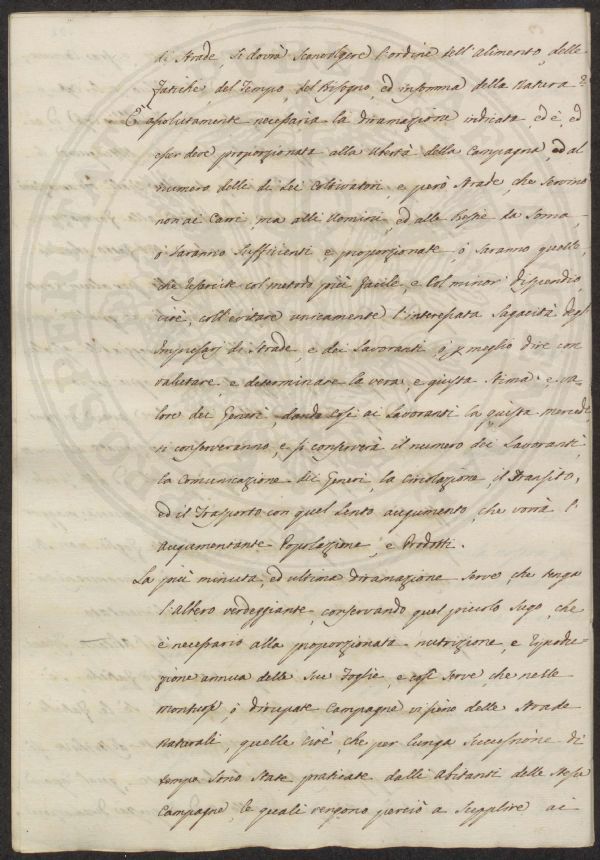 di Strade si dovrà sconvolgere l'ordine dell'alimento, delle
fatiche, del Tempo, del Bisogno, ed insomma della Natura?
È assolutamente necessaria la diramazione indicata, ed è, ed
esser deve proporzionata alla ubertà della Campagna, ed al
numero delli di Lei Coltivatori, e però Strade, che servino
non ai Carri, ma alli Uomini, ed alle Bestie da Soma,
o saranno sufficienti, e proporzionate, o saranno quelle,
che col metodo più facile, e col minor dispendio,
cioè, coll'evitare unicamente l'interessata sagacità degl'
Impresarj di Strade, e dei Lavoranti, o p meglio dire con
valutare, e determinare la vera, e giusta Stima e va-
lore dei Generi, dando così ai Lavoranti la giusta mercede
si conserveranno, e si conserverà il numero dei Lavoranti,
la Comunicazione di Generi, la circolazione, il Transito,
ed il Trasporto con quel lento augumento, che vorrà l'
augumentante Popolazione, e Prodotti.
La più minuta, ed ultima diramazione serve, che tenga
l'albero verdeggiante, conservando quel piccolo sugo, che
è necessario alla proporzionata nutrizione, e riprodu-
zione annua delle sue foglie, e così serve, che nelle
montuose, o dirupate Campagne vi siano delle Strade
naturali, quelle cioè, che per lunga successione di
tempo sono state praticate dalli Abitanti delle stesse
Campagne, le quali vengono perciò a supplire ai